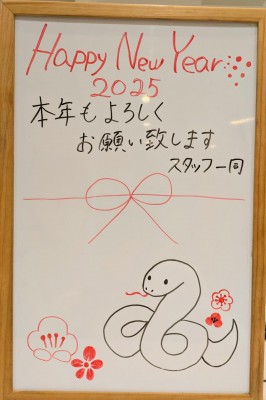 Happy New Year
2025
本年もよろしく
お願い致します
スタッフ一同